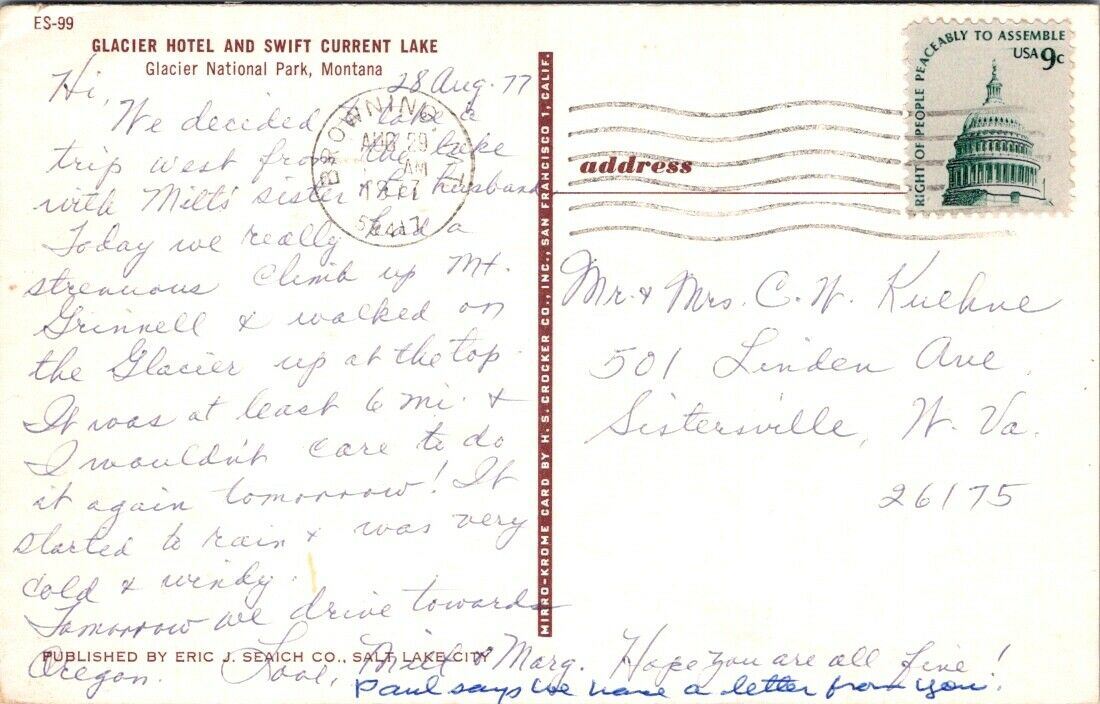 ES-99
GLACIER HOTEL AND SWIFT CURRENT LAKE
Glacier National Park, Montana
28 Aug. 77
Hi,
We decided to take a
trip west from the lake
with Milt's sister & husband
Today we really had a
strenuous climb up Mt.
Grinnell & walked on
the Glacier up at the top.
It was at least 6 mi. &
I wouldn't care to do
it again tomorrow! It
started to rain & was very
cold & windy.
Tomorrow we drive towards
Oregon. Love, Milt & Marg. Hope you are all fine!
Paul says we have a letter from you.
PUBLISHED BY ERIC J. SEAICH CO., SALT LAKE CITY
MIRRO-KROME CARD BY H. S. CROCKER CO., INC., SAN FRANCISCO 1, CALIF.
BROWNING,
AUG 29
AM
address
RIGHT OF PEOPLE PEACEABLY TO ASSEMBLE
USA 9c
Mr. & Mrs. C. W. Kuehne
501 Linden Ave
Sistersville, W. Va.
26175